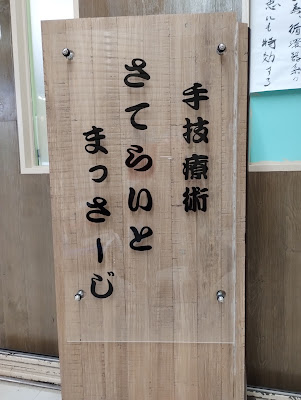 手技療術
さてらいと
まっさーじ
にも特効する